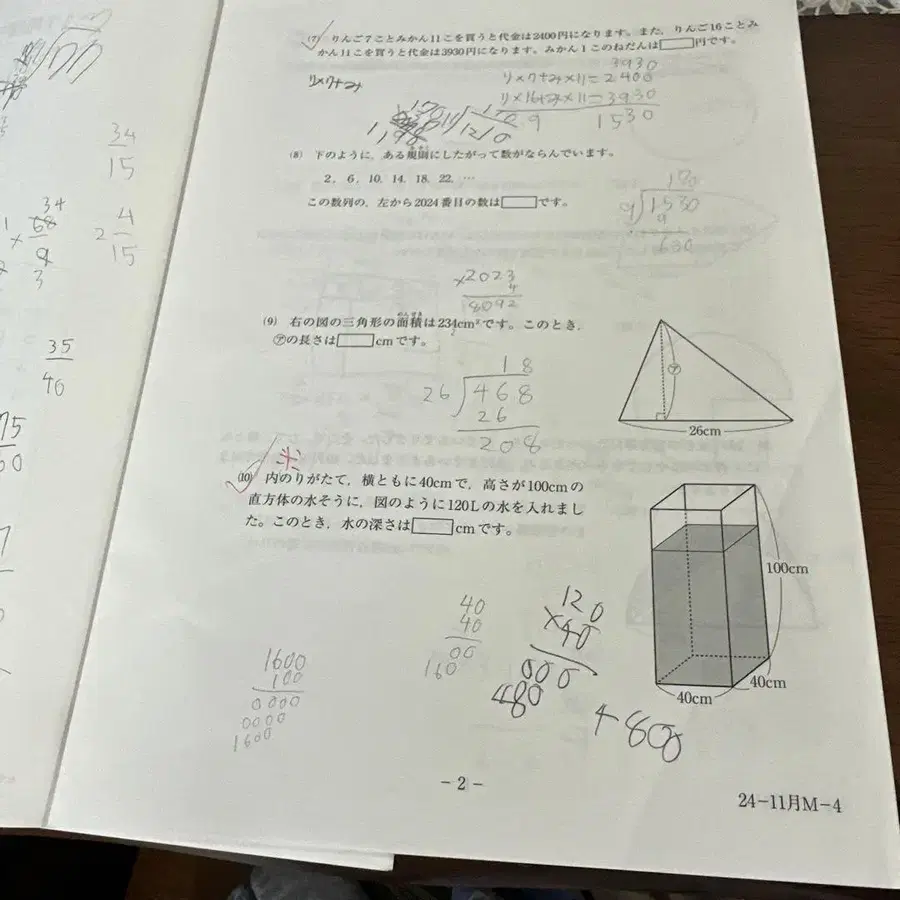 (7) りんご7ことみかん11こを買うと代金は2400円になります。また,りんご16ことみ
かん11こを買うと代金は3930円になります。みかん1このねだんは 円です。
3930
リ×7+み
リ×7+み×11=2400
リ×16+み×11=3930
9 1530
(8) 下のように,ある規則にしたがって数がならんでいます。
2, 6, 10, 14, 18, 22, …
この数列の,左から2024番目の数は です。
170
9 1530
9
630
×2023
4
8092
(9) 右の図の三角形の面積は234cm²です。このとき,
㋐の長さは cmです。
めんせき
18
26 468
26
208
㋐
26cm
(10) 内のりがたて,横ともに40cmで,高さが100cmの
直方体の水そうに,図のように120Lの水を入れまし
た。このとき,水の深さは cmです。
100cm
40cm
40cm
40
40
00
160
120
×40
000
480
4800
1600
100
0000
0000
1600
34
15
34
68
9
3
2 4
15
35
46
75
60
- 2 -
24-11月M-4